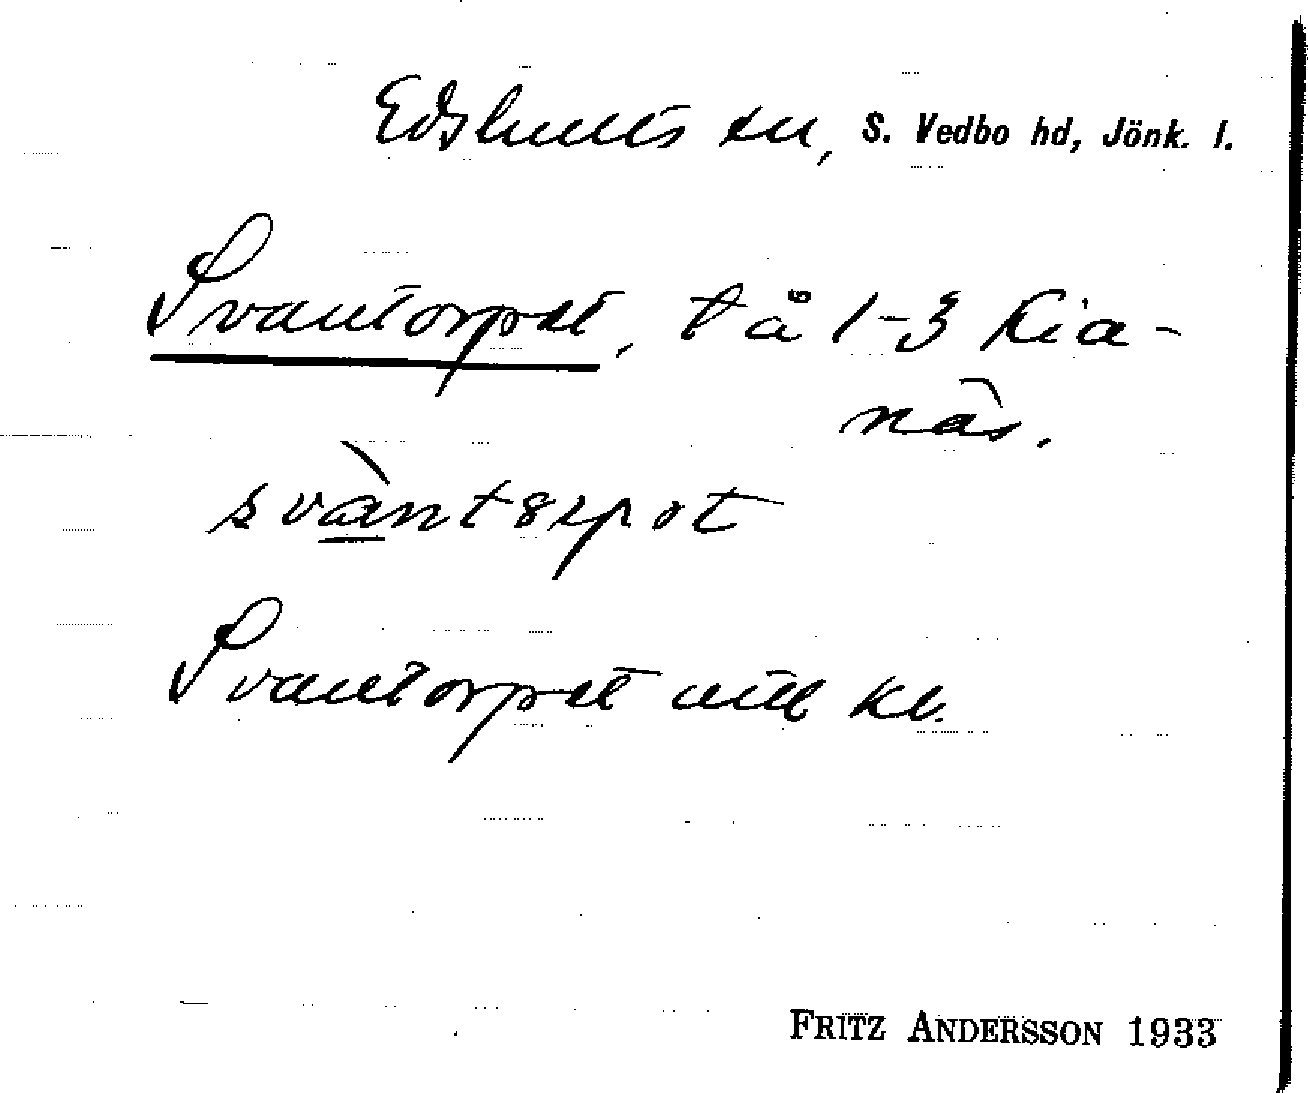 Edshults sn, S. Vedbo hd, Jönk. l.
Svantorpet, t å 1-3 Lia-
näs.
svàntərpət
Svantorpet uttl kb.
FRITZ ANDERSSON 1933